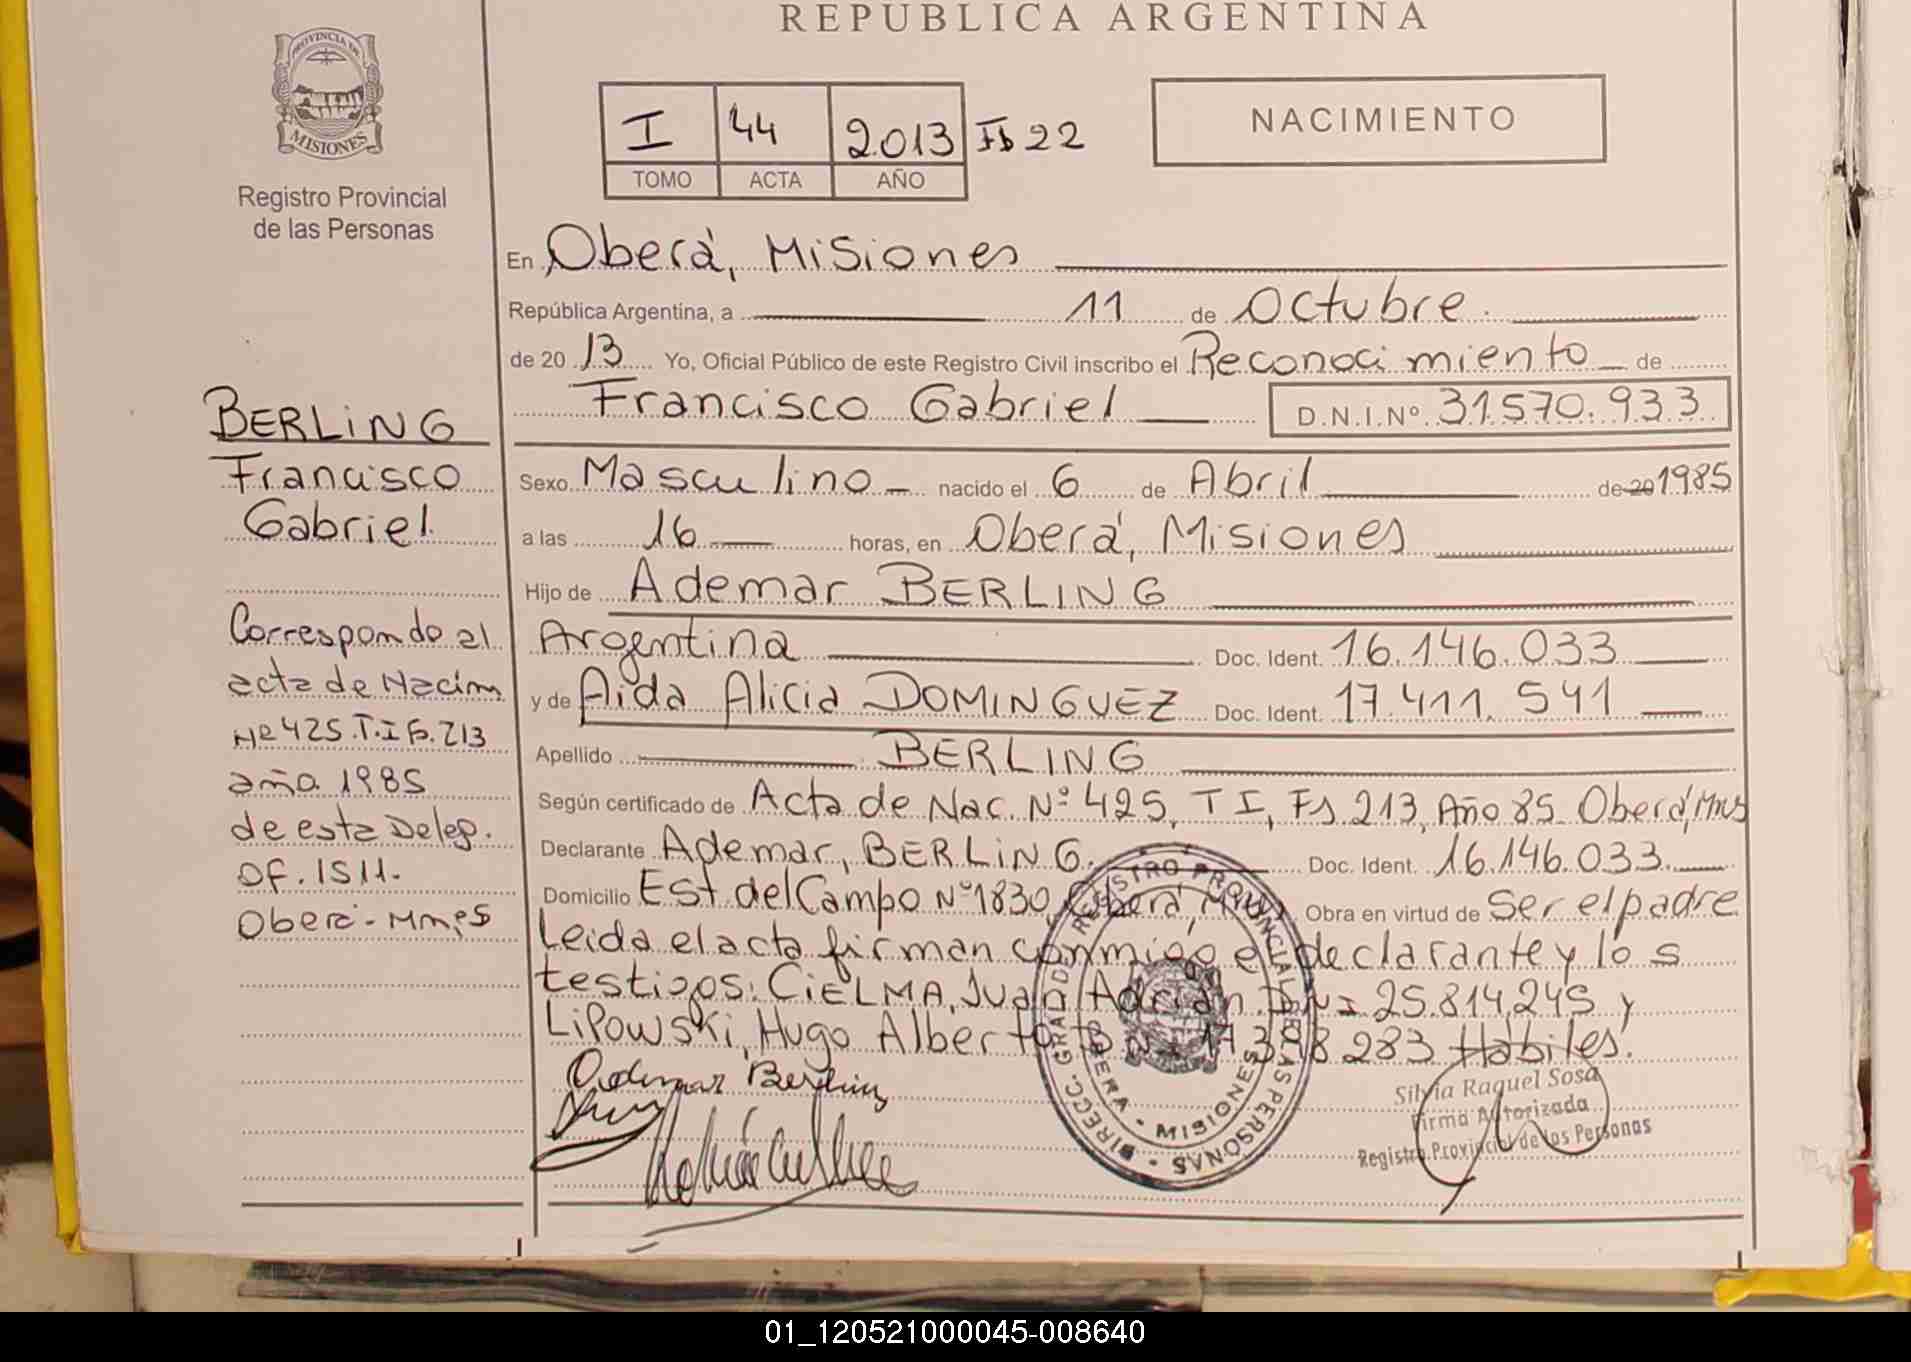 REPÚBLICA ARGENTINA
PROVINCIA DE
MISIONES
Registro Provincial
de las Personas
I 44 2013 Fs 22
TOMO ACTA AÑO
NACIMIENTO
En Oberá, Misiones
República Argentina, a 11 de Octubre
de 20 13 Yo, Oficial Público de este Registro Civil inscribo el Reconocimiento de
Francisco Gabriel D.N.I.Nº 31.570.933
Sexo Masculino nacido el 6 de Abril de 20 1985
a las 16 horas, en Oberá, Misiones
Hijo de Ademar BERLING
Argentina Doc. Ident. 16.146.033
y de Aida Alicia DOMINGUEZ Doc. Ident. 17.411.541
Apellido BERLING
Según certificado de Acta de Nac. Nº 425, T I, Fs 213, Año 85 Oberá, Mnes
Declarante Ademar, BERLING. Doc. Ident. 16.146.033.
Domicilio Est. del Campo Nº 1830, Oberá, Mnes Obra en virtud de Ser el padre
Leida el acta firman conmigo el declarante y los
testigos: CIELMA, Juan Adrian. DNI 25.814.245 y
LIPOWSKI, Hugo Alberto DNI 17.398.283 Hábiles.
BERLING
Francisco
Gabriel
Corresponde al
acta de Nacim
Nº 425.T.I Fs.213
año 1985
de esta Deleg.
OF.1511.
Oberá-Mnes
Ademar Berling
DIRECC. GRAL DE REGISTRO PROVINCIAL DE LAS PERSONAS
OBERA - MISIONES
Silvia Raquel Sosa
Firma Autorizada
Registro Provincial de las Personas
01_120521000045-008640